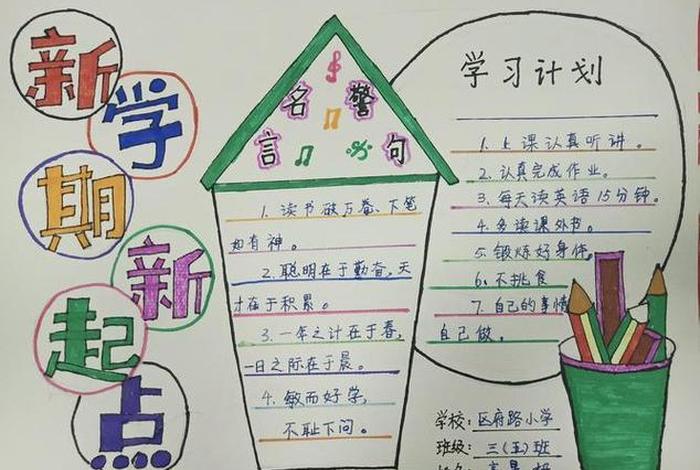 新学期新起点
名言警句
1. 读书破万卷、下笔
如有神。
2. 聪明在于勤奋,天
才在于积累。
3. 一年之计在于春,
一日之际在于晨。
4. 敏而好学,
不耻下问。
学习计划
1. 上课认真听讲。
2. 认真完成作业。
3. 每天读英语15分钟。
4. 多读课外书。
5. 锻炼好身体。
6. 不挑食
7. 自己的事情
自己做。
学校:区府路小学
班级:三(五)班